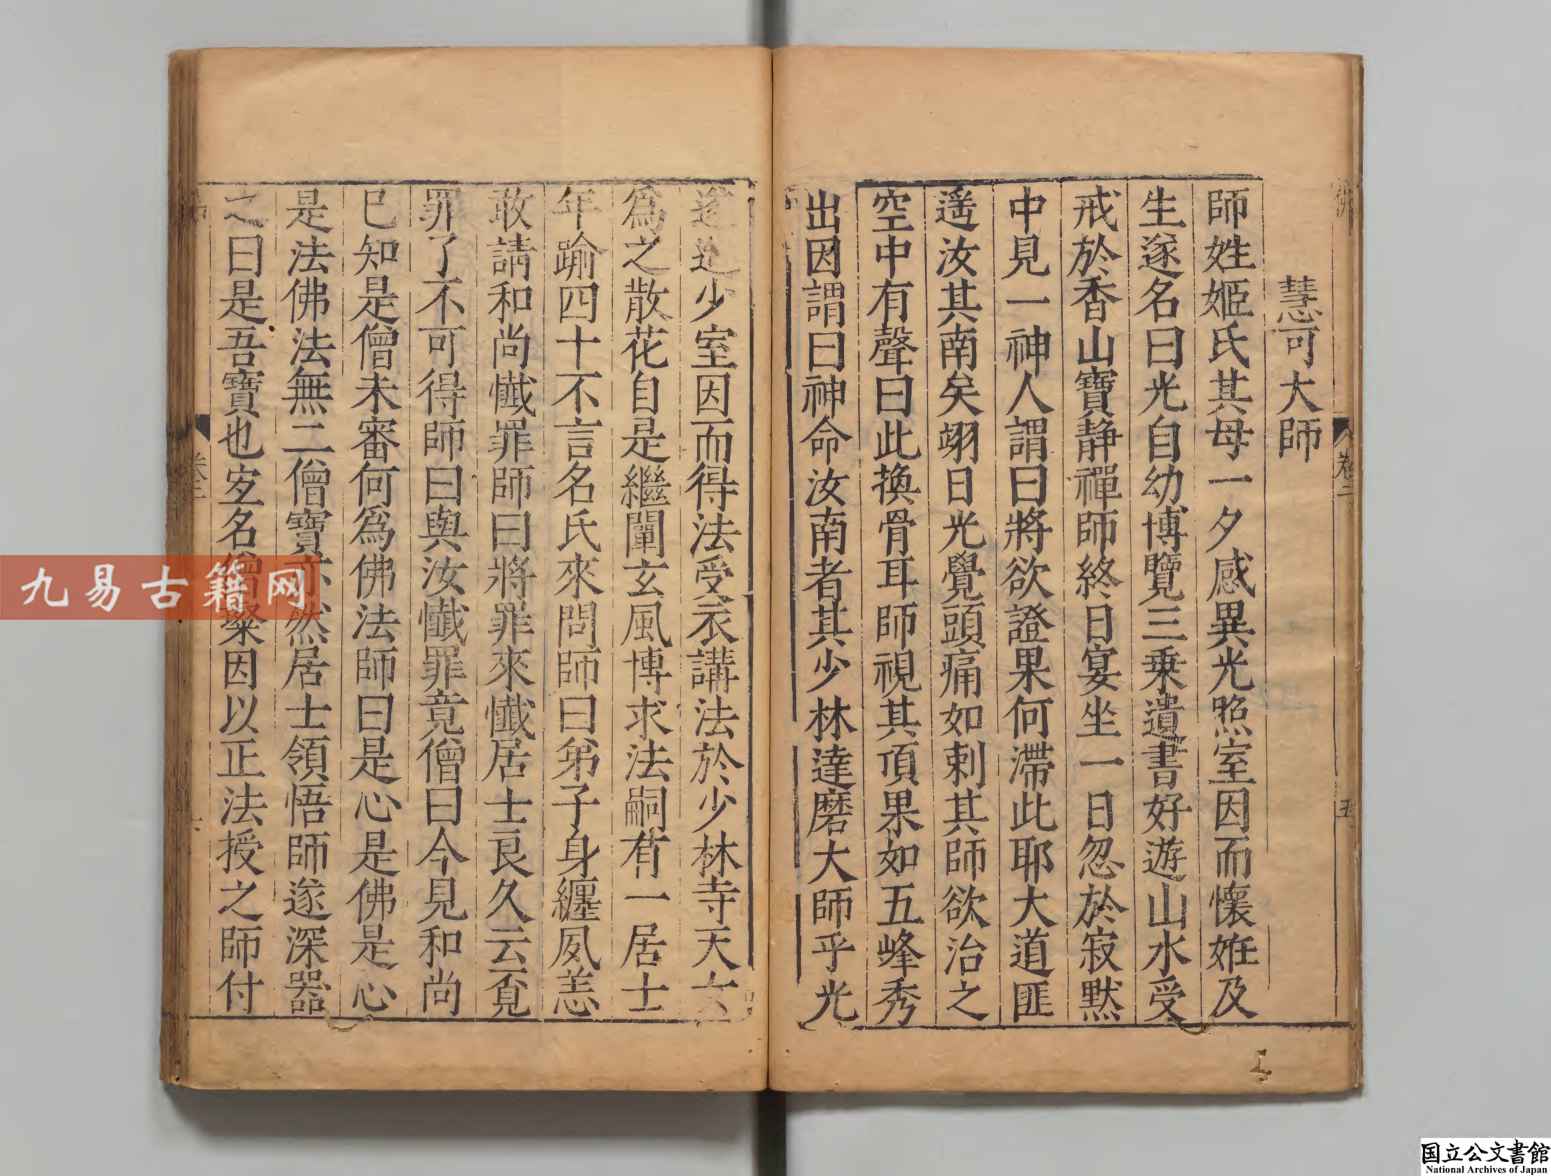 慧可大師
師姓姬氏其母一夕感異光照室因而懷姙及
生遂名曰光自幼博覽三乗遺書好遊山水受
戒於香山寶静禪師終日宴坐一日忽於寂默
中見一神人謂曰將欲證果何滯此耶大道匪
遥汝其南矣翊日光覺頭痛如刺其師欲治之
空中有聲曰此換骨耳師視其頂果如五峰秀
出因謂曰神命汝南者其少林達磨大師乎光
少室因而得法受衣講法於少林寺天女
爲之散花自是繼闡玄風博求法嗣有一居士
年踰四十不言名氏來問師曰弟子身纏夙恙
敢請和尚懺罪師曰將罪來懺居士良久云覓
罪了不可得師曰與汝懺罪竟僧曰今見和尚
已知是僧未審何爲佛法師曰是心是佛是心
是法佛法無二僧寶亦然居士領悟師遂深器
之曰是吾寶也宜名僧璨因以正法授之師付
卷二
五
九易古籍网
国立公文書館
National Archives of Japan